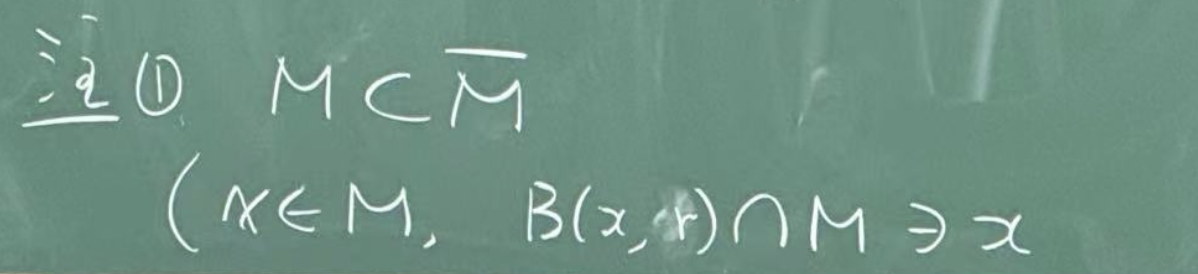 注① M⊂M̅
(x∈M, B(x,r)∩M∋x